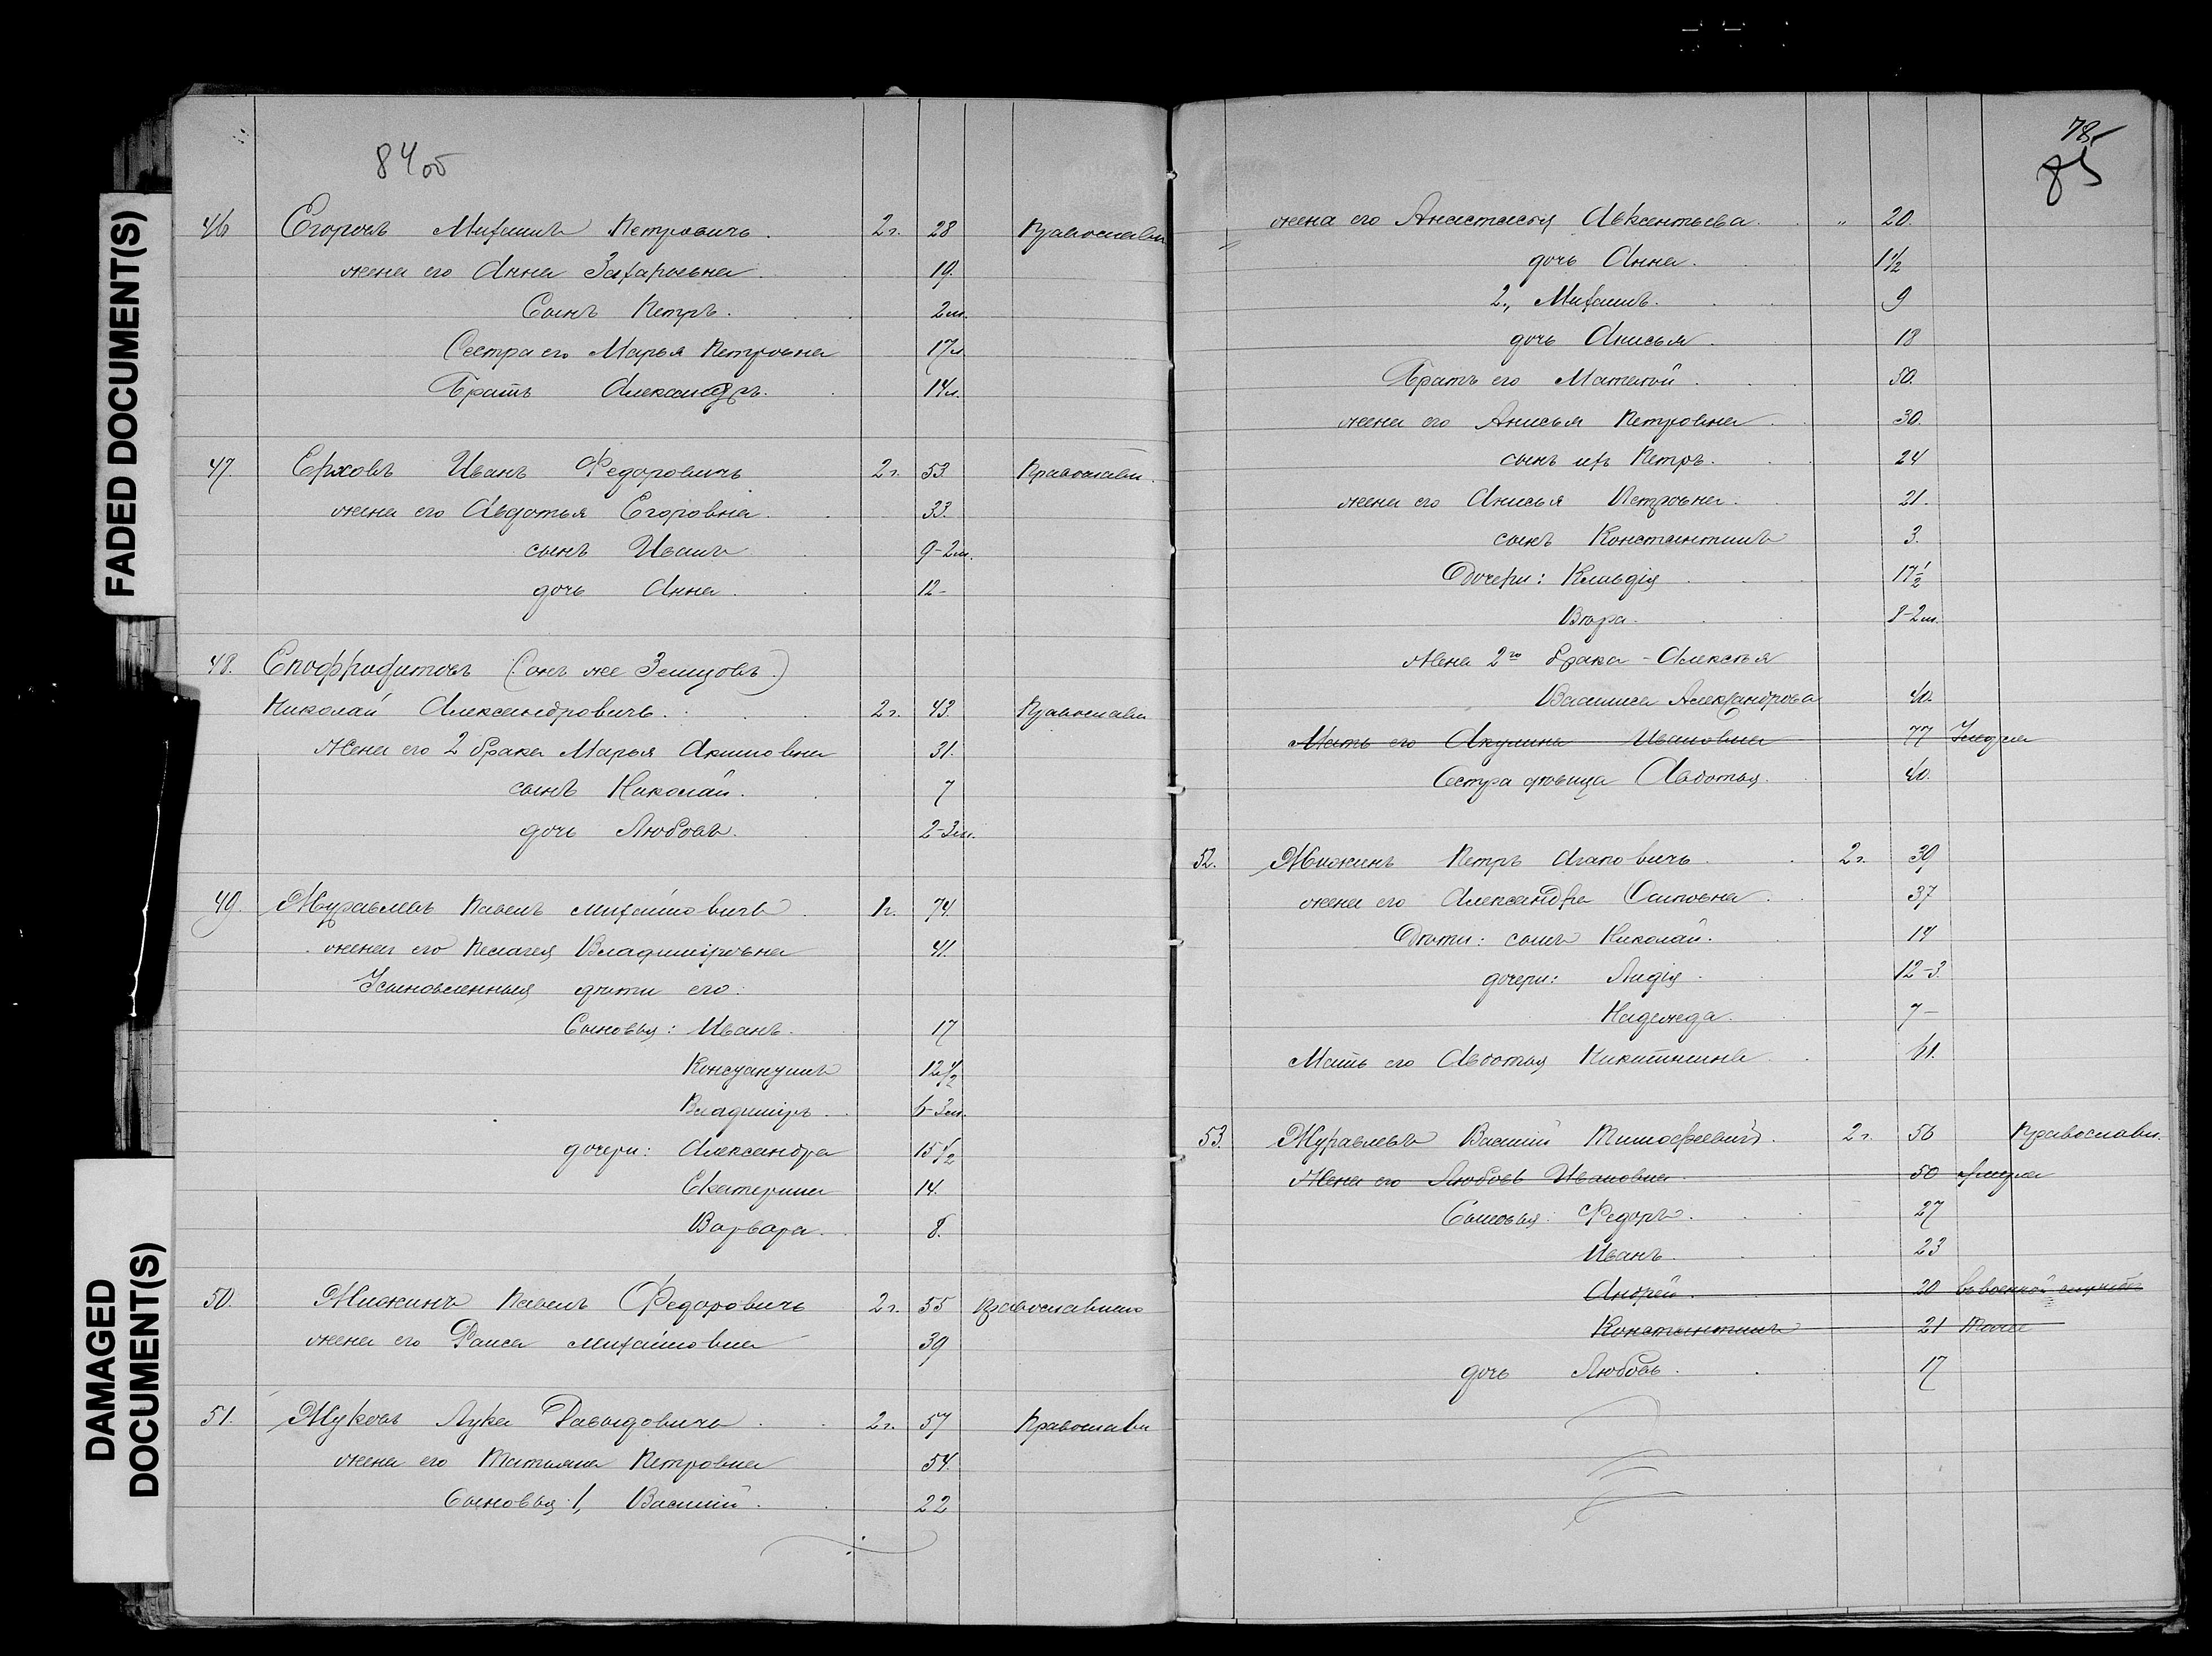 FADED DOCUMENT(S)
DAMAGED DOCUMENT(S)
84об
46 Егоровъ Михаилъ Петровичъ. 2 г. 28 Православн
жена его Анна Захаровна. 19.
Сынъ Петръ. 2 м.
Сестра его Марья Петровна 17 л
Братъ Александръ. 14 л.
47. Ерховъ Иванъ Федоровичъ 2 г. 53 Православн.
жена его Авдотья Егоровна. 33.
сынъ Иванъ 9-2 м.
дочь Анна. 12-
48. Епофродитовъ (онъ же Земцовъ.)
Николай Александровичъ. 2 г. 43. Православн
Жена его 2 брака Марья Акимовна 31.
сынъ Николай. 7
дочь Любовь. 2-3 м.
49. Журавлевъ Павелъ Михайловичъ. 1 г. 74.
жена его Пелагея Владиміровна 41.
Усыновленныя дѣти его:
Сыновья: Иванъ. 17
Константинъ 12 1/2
Владиміръ. 6-3 м.
дочери: Александра 15 1/2
Екатерина 14.
Варвара. 8.
50. Жижинъ Павелъ Федоровичъ 2 г. 55 Православнаго
жена его Раиса Михайловна 39
51. Жуковъ Лука Давыдовичъ. 2 г. 57 Православн
жена его Татьяна Петровна 54.
Сыновья: 1, Василій. 22
78
85
жена его Анастасья Авксентьева. " 20.
дочь Анна. 1 1/2
2., Михаилъ. 9
дочь Анисья. 18
Братъ его Матвей. 50.
жена его Анисья Петровна. 30.
сынъ ихъ Петръ. 24
жена его Анисья Петровна. 21.
сынъ Константинъ 3.
Дочери: Клавдія. 17 1/2
Вѣра. 8-2 м.
Жена 2го брака -
Василиса Александрова 40.
Мать его Акулина Ивановна 77 Умерла
Сестра дѣвица Авдотья. 40.
52. Жижинъ Петръ Агаповичъ. 2 г. 39
жена его Александра Осиповна. 37
Дѣти: сынъ Николай. 14
дочери: Лидія. 12-3.
Надежда. 7-
Мать его Авдотья Никитишна. 61.
53. Журавлевъ Василій Тимофеевичъ. 2 г. 56 Православн.
Жена его Любовь Ивановна. 50 умерла
Сыновья: Федоръ. 27
Иванъ. 23
Андрей. 20 въ военной службѣ
Константинъ 21 Тоже
дочь Любовь. 17